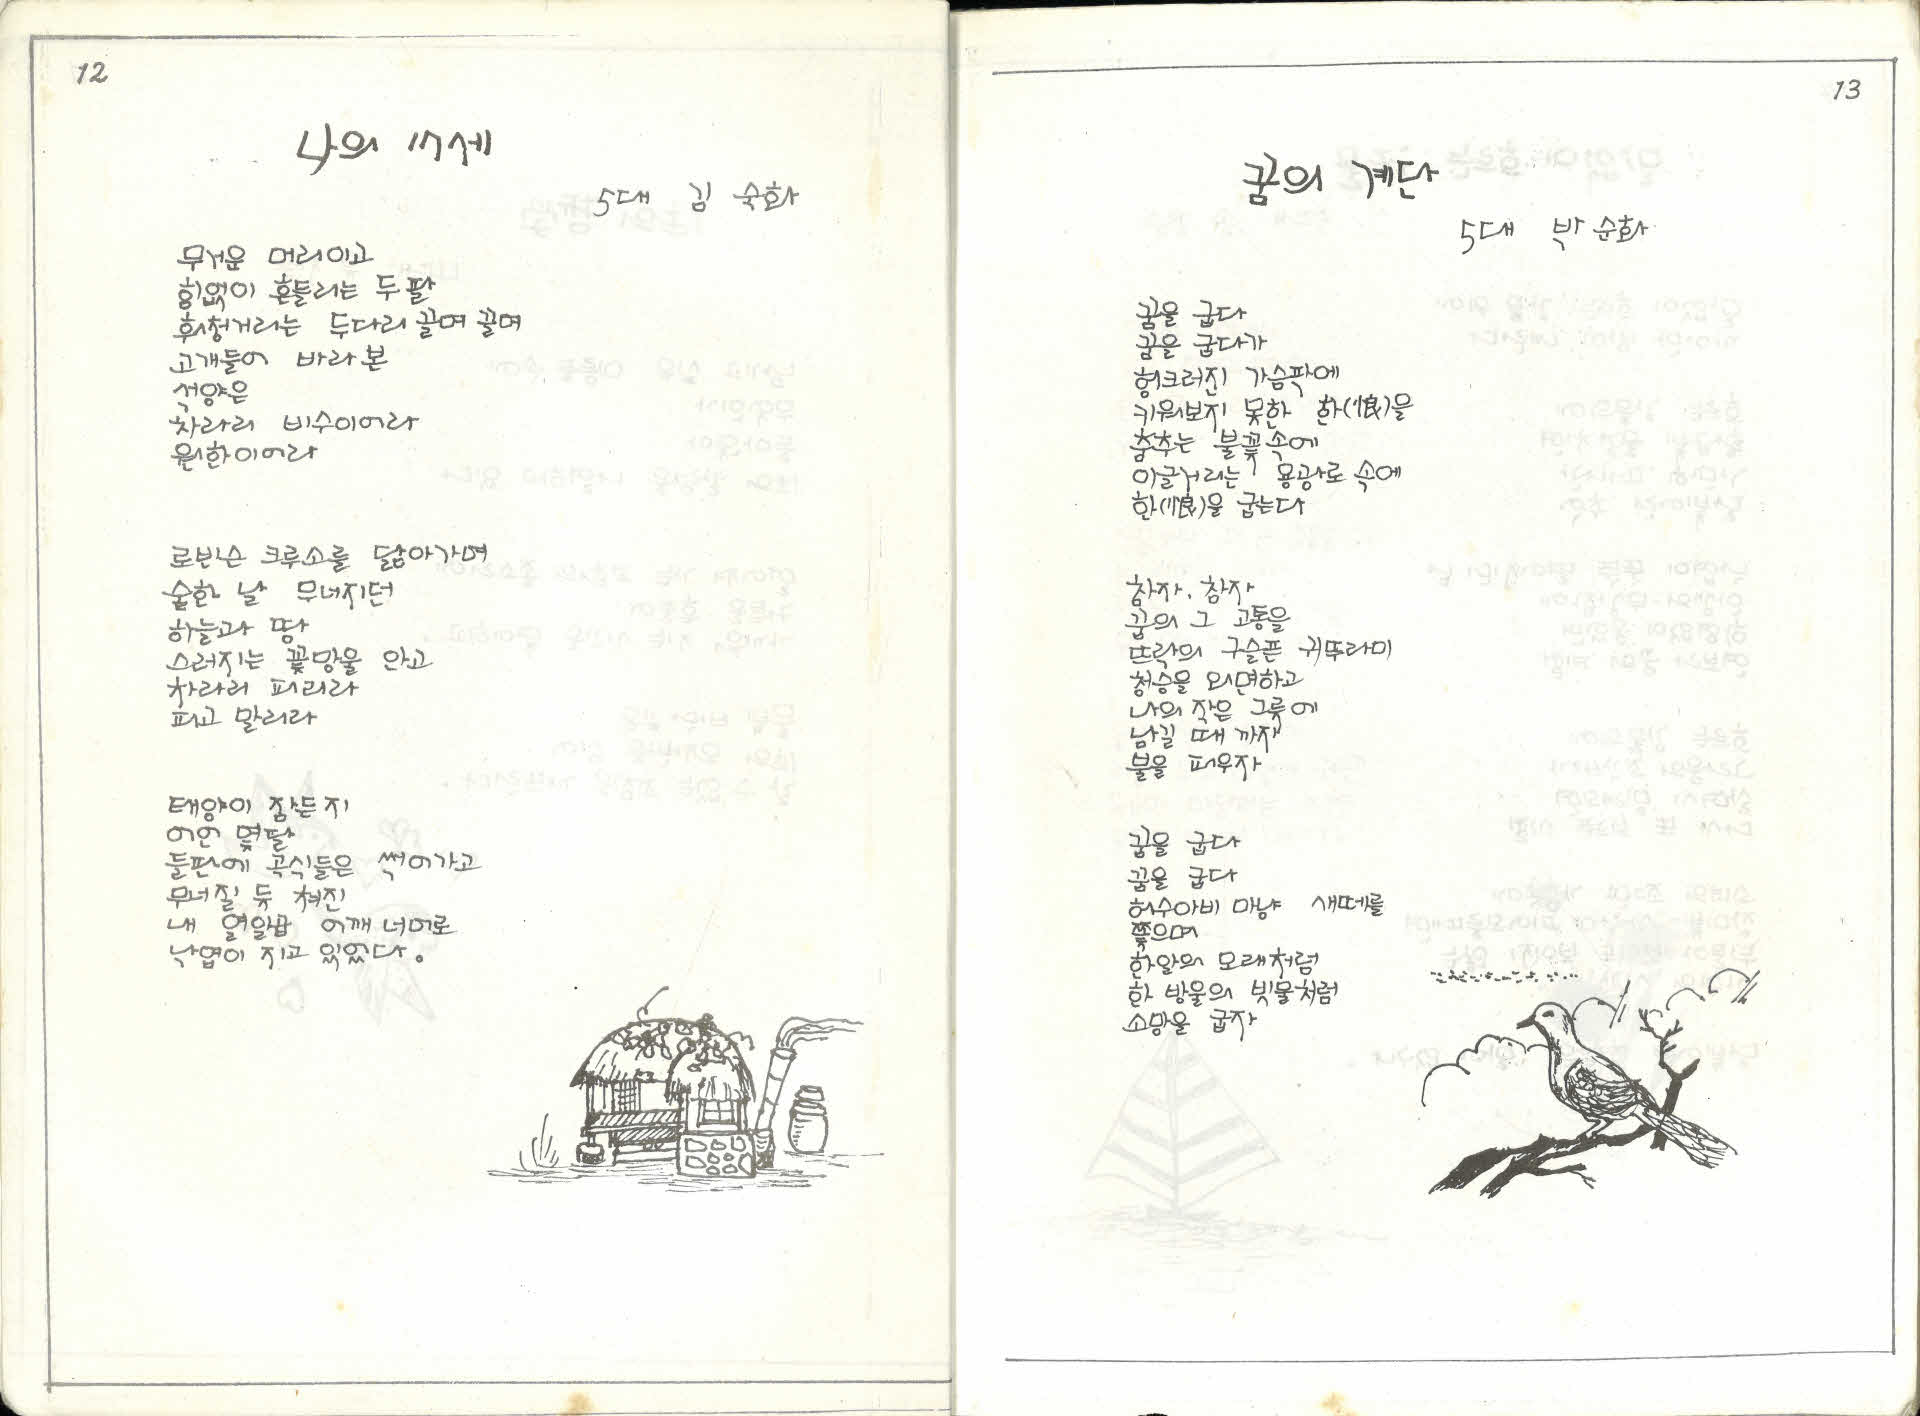 12
나의 17세
5대 김 숙화
무거운 머리이고
힘없이 흔들리는 두 팔
휘청거리는 두다리 끌며 끌며
고개들어 바라본
석양은
차라리 비수이어라
원한이어라
로빈슨 크루소를 닮아가며
숱한 날 무너지던
하늘과 땅
스러지는 꽃망울 안고
차라리 피리라
피고 말리라
태양이 잠든지
어언 몇달
들판에 곡식들은 썩어가고
무너질 듯 쳐진
내 열일곱 어깨 너머로
낙엽이 지고 있었다.
13
꿈의 계단
5대 박 순화
꿈을 굽다
꿈을 굽다가
헝크러진 가슴팍에
키워보지 못한 한(恨)을
춤추는 불꽃속에
이글거리는 용광로 속에
한(恨)을 굽는다
참자, 참자
꿈의 그 고통을
뜨락의 구슬픈 귀뚜라미
청승을 외면하고
나의 작은 그릇에
남길 때 까지
불을 피우자
꿈을 굽다
꿈을 굽다
허수아비 마냥 새떼를
쫓으며
한알의 모래처럼
한 방울의 빗물처럼
소망을 굽자